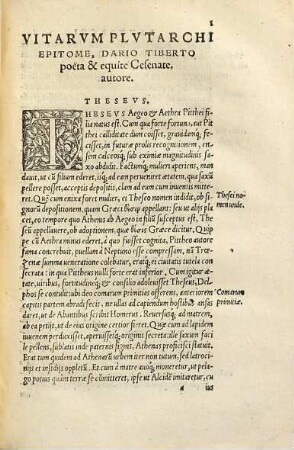 1
VITARVM PLVTARCHI
EPITOME, DARIO TIBERTO
poëta & equite Cesenate,
autore.
THESEVS.
THESEVS Aegeo & Aethra Pitthei fi
lia natus est. Cum qua forte fortuna, nec Pit
thei calliditate dum coisset, grauidamq; fe-
cisset, in futuræ prolis recognitionem, en-
sem calceosq; sub eximia magnitudinis sa-
xo abdidit. Factumq; mulieri aperiens, man
dauit, ut si filium ederet, isq; ad eam perueniret ætatem, qua saxũ
pellere posset, acceptis depositis, clam ad eum cum inuenis mitte
ret. Quæ cum enixa foret mulier, ei Theseo nomen indidit, ob si-
gnorũ depositionem, quam θέσιν Græci appellant: seu ut alijs pla
cet, eo tempore quo Athenis ab Aegeo in filiũ susceptus est, The
seũ appellauere, ob adoptionem, quæ θέσις Græce dicitur. Quip
pe cũ Aethra minus ederet, à quo fuisset cognita, Pittheo autore
fama concrebuit, puellam à Neptuno esse compressam: nã Trœ-
zenæ summa ueneratione colebatur, eratq; ei ciuitatis tutela de-
creta: in qua Pittheus nulli forte erat inferior. Cum igitur æta-
tem, uiribus, fortitudineq; & consilio adoleuisset Theseus, Del-
phos se contulit: ubi deo comarum primitias offerens, anteriorem
capitis partem abradi fecit, ne ullus ad capiendum hostibus an-
sas daret, ut de Abantibus scribit Homerus. Reuersusq; ad matrem,
ab ea petijt, ut de eius origine certior fieret. Quæ cum ad lapidem
iuuenem perduxisset, aperuissetq; originis seriem: Theseus saxum fa-
cile pellens, sublatis inde paternis signis, Athenas proficisci statuit.
Erat tum quidem ad Athenarũ urbem iter non tutum, sed latroci-
nijs et insidijs oppletũ. Et cum à matre, auoq; moneretur, ut pe-
lago potius quàm terra se cõmitteret, ipse ut Alcidē imitaretur, eu
Thesei no-
men unde.
Comarum
primitiæ.
a iii